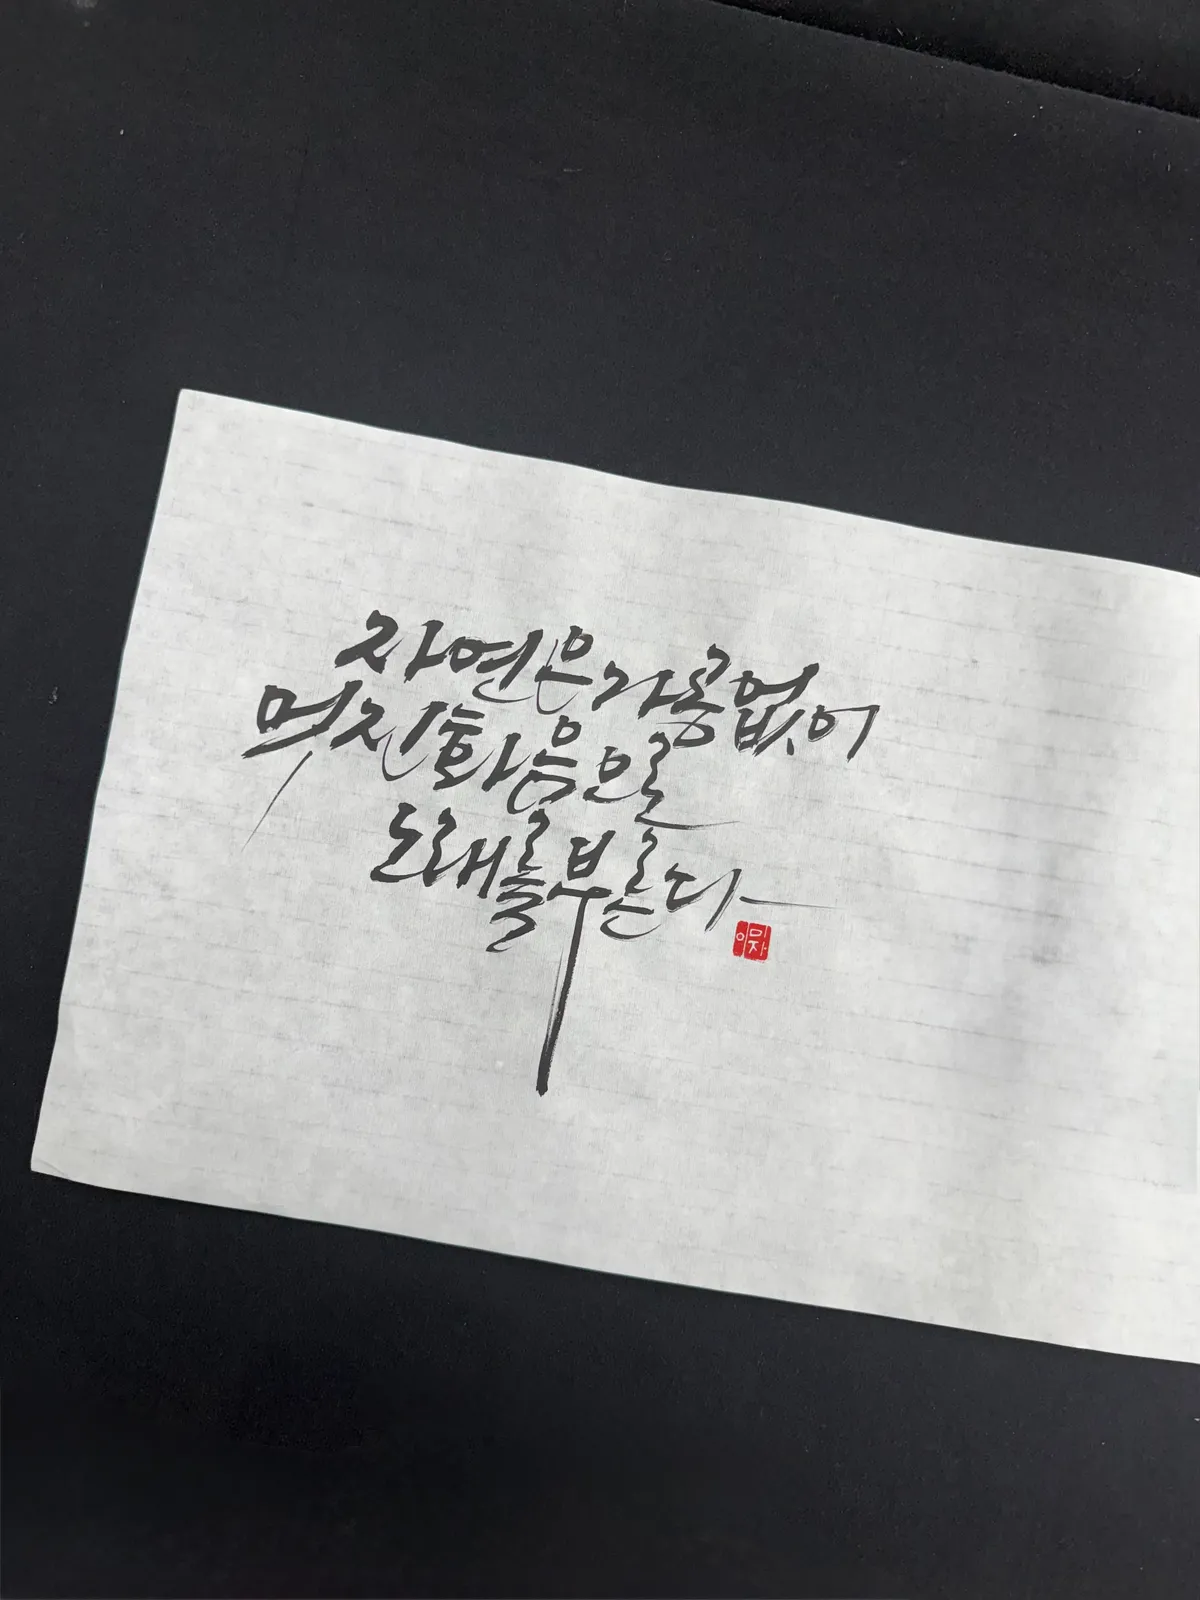 자연은 가공없이
멋진 화음으로
노래를 부른다
이미자